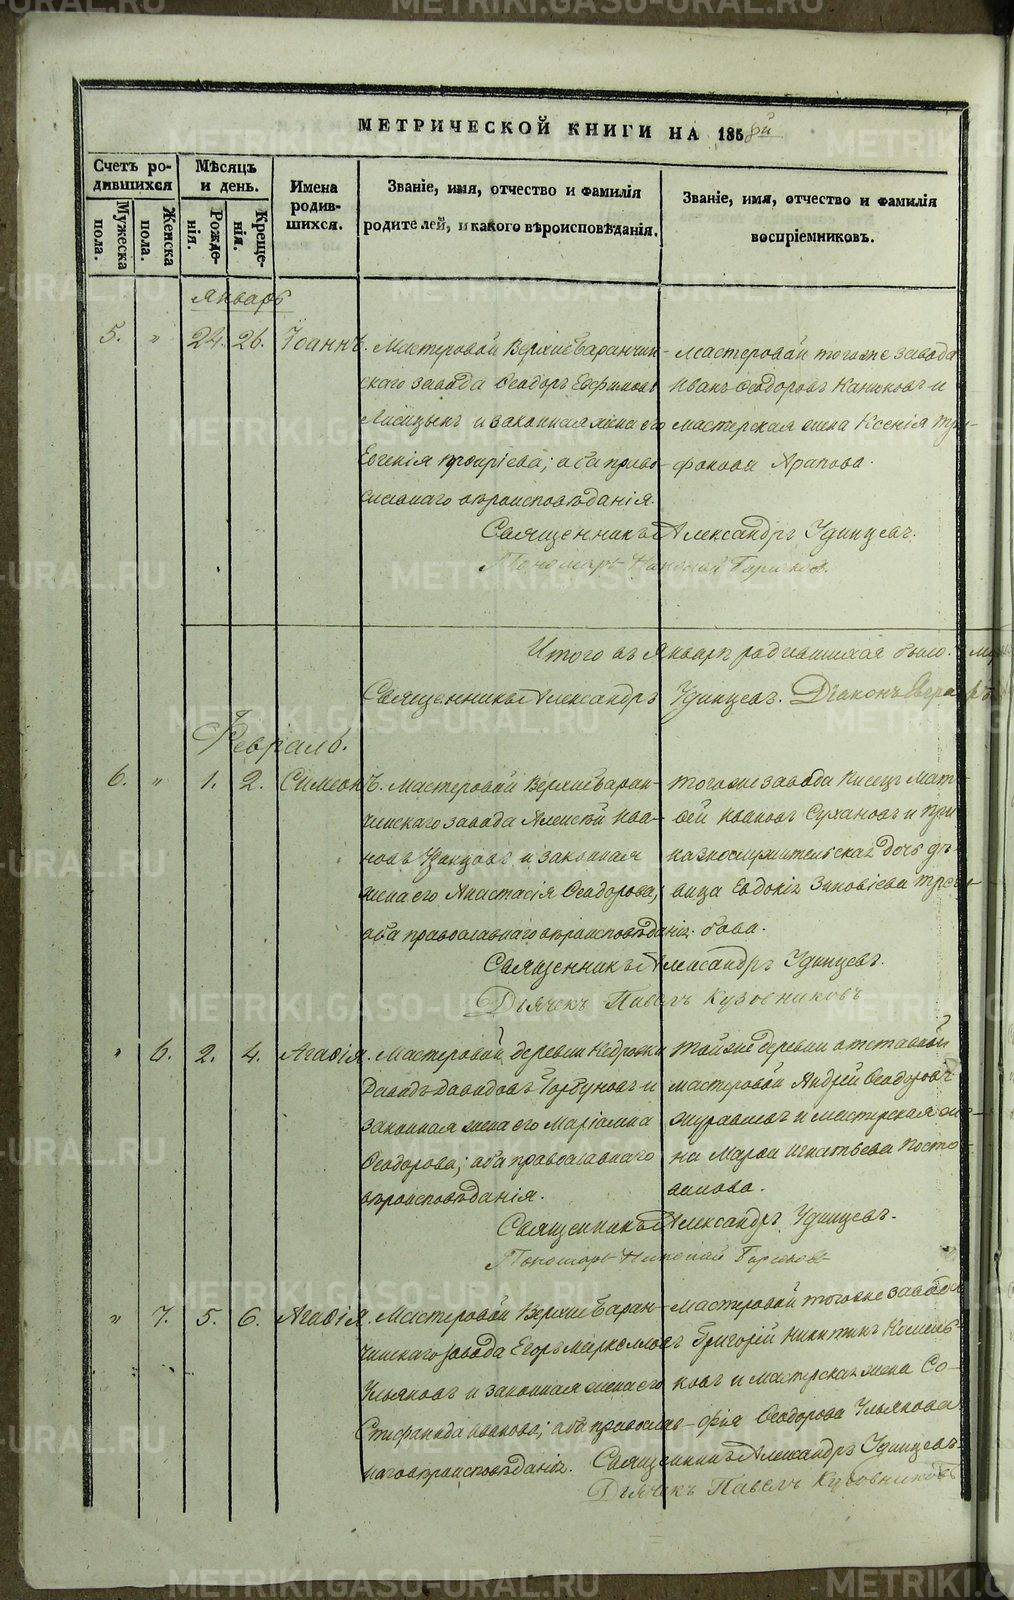 МЕТРИЧЕСКОЙ КНИГИ НА 1858й
Счетъ ро-
дившихся
Мужеска
пола.
Женска
пола.
Мѣсяцъ
и день.
Рожде-
нія.
Креще-
нія.
Имена
родив-
шихся.
Званіе, имя, отчество и фамилія
родителей, и какого вѣроисповѣданія.
Званіе, имя, отчество и фамилія
воспріемниковъ.
Январь
5. " 24. 26. Іоаннъ.
Мастеровой Верхнебаранчин-
скаго завода Ѳеодоръ Евфимовъ
Лисицынъ и законная жена его
Евгенія; оба право-
славнаго вѣроисповѣданія.
Мастеровой тогоже завода
Иванъ Ѳеодоровъ Канюковъ и
мастерская жена Ксенія Три-
фонова Арапова.
Священникъ Александръ Удинцевъ.
Пономарь Николай
Итого въ Январѣ родившихся было.
Священникъ Александръ Удинцевъ. Діаконъ
Февраль.
6. " 1. 2. Симеонъ.
Мастеровой Верхнебаран-
чинскаго завода Алексѣй Ива-
новъ и законная
жена его Анастасія Ѳеодорова;
оба православнаго вѣроисповѣданія.
Тогоже завода Писецъ Мат-
вей Ивановъ Сухановъ и
дочь дѣ-
вица Евдокія Зиновіева Трегу-
бова.
Священникъ Александръ Удинцевъ.
Дьячекъ Павелъ Кузовниковъ
" 6. 2. 4. Агаѳія.
Мастеровой деревни Кедровки
Давидъ Давидовъ Горбуновъ и
законная жена его Маріамна
Ѳеодорова; оба православнаго
вѣроисповѣданія.
Тойже деревни отставной
мастеровой Андрей Ѳеодоровъ
Журавлевъ и мастерская же-
на Марѳа Игнатьева Посто-
валова.
Священникъ Александръ Удинцевъ.
Пономарь Николай
" 7. 5. 6. Агаѳія.
Мастеровой Верхнебаран-
чинскаго завода Егоръ Маркелловъ
Ульяновъ и законная жена его
Стефанида Иванова; оба православ-
наго вѣроисповѣданія.
Мастеровой тогоже завода
Григорій Никитинъ Кисель-
ковъ и мастерская жена Со-
фія Ѳеодорова Ульянова
Священникъ Александръ Удинцевъ.
Дьячекъ Павелъ Кузовниковъ
METRIKI.GASO-URAL.RU